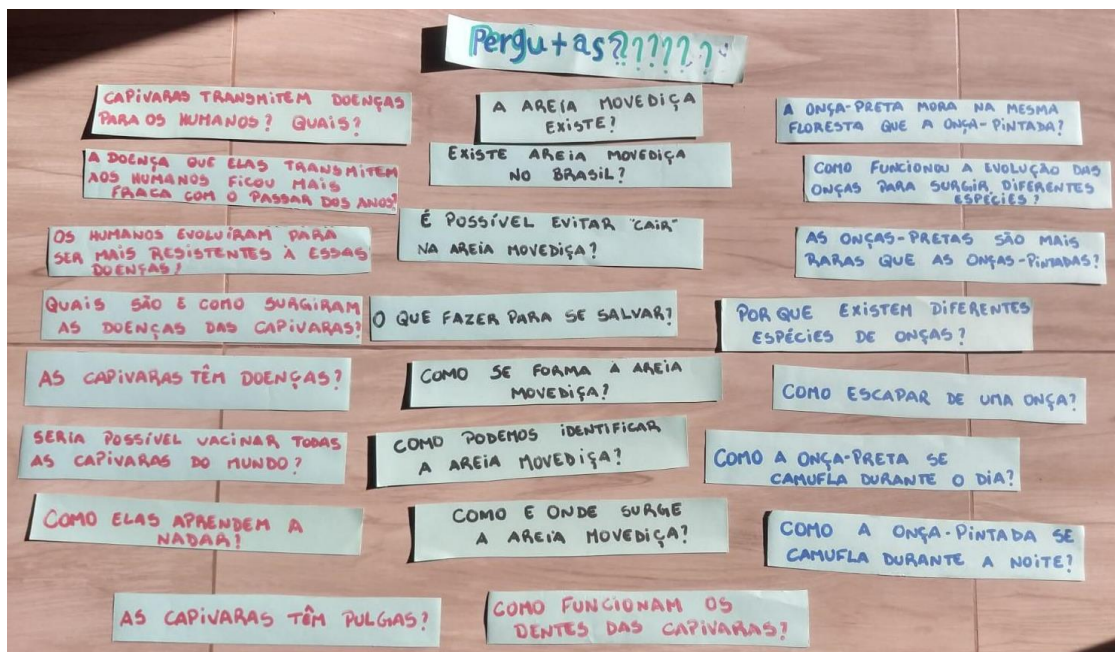 Pergu+as??????
CAPIVARAS TRANSMITEM DOENÇAS
PARA OS HUMANOS? QUAIS?
A DOENÇA QUE ELAS TRANSMITEM
AOS HUMANOS FICOU MAIS
FRACA COM O PASSAR DOS ANOS?
OS HUMANOS EVOLUÍRAM PARA
SER MAIS RESISTENTES À ESSAS
DOENÇAS?
QUAIS SÃO E COMO SURGIRAM
AS DOENÇAS DAS CAPIVARAS?
AS CAPIVARAS TÊM DOENÇAS?
SERIA POSSÍVEL VACINAR TODAS
AS CAPIVARAS DO MUNDO?
COMO ELAS APRENDEM A
NADAR?
AS CAPIVARAS TÊM PULGAS?
A AREIA MOVEDIÇA
EXISTE?
EXISTE AREIA MOVEDIÇA
NO BRASIL?
É POSSÍVEL EVITAR "CAIR"
NA AREIA MOVEDIÇA?
O QUE FAZER PARA SE SALVAR?
COMO SE FORMA A AREIA
MOVEDIÇA?
COMO PODEMOS IDENTIFICAR
A AREIA MOVEDIÇA?
COMO E ONDE SURGE
A AREIA MOVEDIÇA?
COMO FUNCIONAM OS
DENTES DAS CAPIVARAS?
A ONÇA-PRETA MORA NA MESMA
FLORESTA QUE A ONÇA-PINTADA?
COMO FUNCIONOU A EVOLUÇÃO DAS
ONÇAS PARA SURGIR DIFERENTES
ESPÉCIES?
AS ONÇAS-PRETAS SÃO MAIS
RARAS QUE AS ONÇAS-PINTADAS?
POR QUE EXISTEM DIFERENTES
ESPÉCIES DE ONÇAS?
COMO ESCAPAR DE UMA ONÇA?
COMO A ONÇA-PRETA SE
CAMUFLA DURANTE O DIA?
COMO A ONÇA-PINTADA SE
CAMUFLA DURANTE A NOITE?